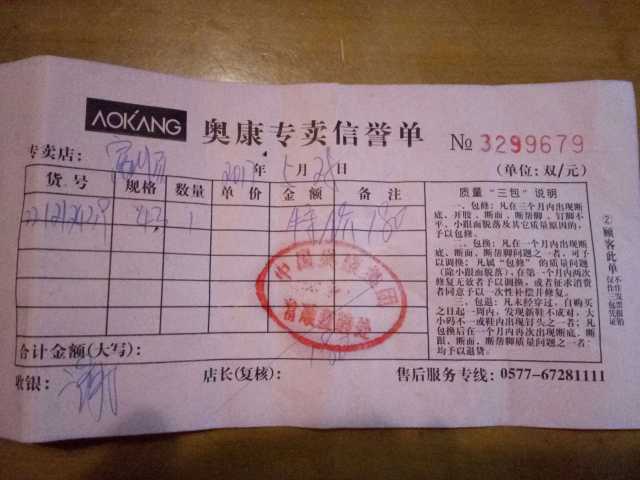 AOKANG
奥康专卖信誉单
№ 3299679
专卖店: 富顺 2012年5月25日
(单位:双/元)
货号 规格 数量 单价 金额 备注
42 1 特价 180
质量“三包”说明
一、包修:凡在三个月内出现断
底、开胶、断面、断帮脚、钉脚不
平、小跟面脱落及其它质量原因的,
予以包修。
二、包换:凡在一个月内出现断
底、断面、断帮脚问题之一者,可予
以调换;凡属“包修”的质量问题
(除小跟面脱落),在第一个月内两次
修复无效者予以调换,或者征求消费
者同意予以一次性补偿并修复。
三、包退:凡未经穿过,自购买
之日起一周内,发现新鞋不成对,大
小码不一或鞋内出现钉头之一者;凡
包换后在一个月内再次出现断底、断
跟、断面、断帮脚质量问题之一者,
均予以退货。
②顾客此单
合计金额(大写):
收银: 谢
店长(复核):
售后服务专线: 0577-67281111